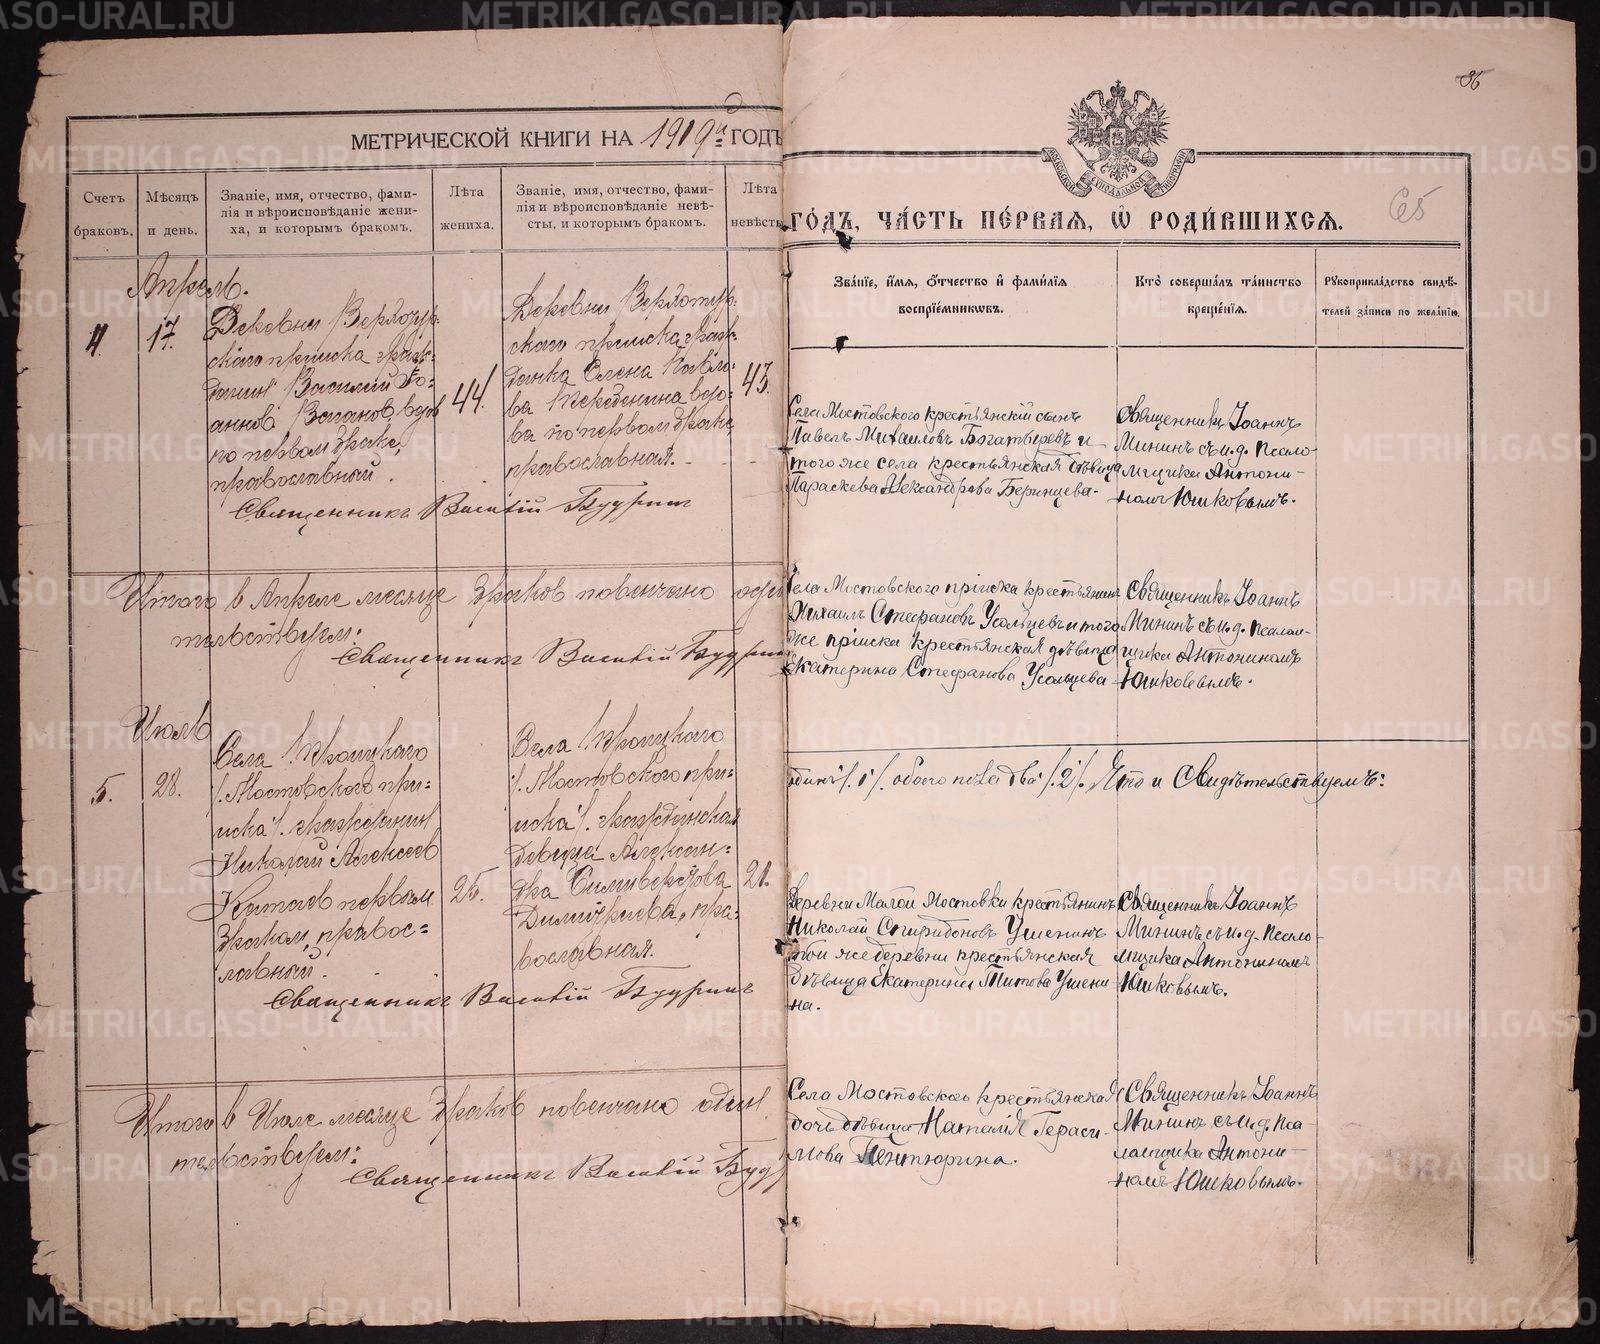 МЕТРИЧЕСКОЙ КНИГИ НА 1919й ГОДЪ
Счетъ браковъ.
Мѣсяцъ и день.
Званіе, имя, отчество, фами-
лія и вѣроисповѣданіе жени-
ха, и которымъ бракомъ.
Лѣта жениха.
Званіе, имя, отчество, фами-
лія и вѣроисповѣданіе невѣ-
сты, и которымъ бракомъ.
Лѣта невѣсты
Апрель.
4.
17.
Деревни Верхотур-
скаго прииска граж-
данин Василий Ио-
аннов вдов
по первом браке,
православный.
44.
Деревни Верхотур-
скаго прииска граж-
данка Елена Павло-
ва вдо-
ва по первом браке,
православная.
43.
Священникъ Василій
Итого в Апреле месяце браков повенчано
тельствуем:
Священникъ Василій
Июль
5.
28.
Села Троицкаго
/.Мостовского при-
иска/. гражданин
Николай Алексеев
Китаев первым
браком, правос-
лавный.
25.
Села Троицкаго
/.Мостовского при-
иска/. гражданская
девица Алексан-
дра Силиверстова
пра-
вославная.
21.
Священникъ Василій
Итого в Июле месяце браков повенчано один
тельствуем:
Священникъ Василій
86
65
МОСКОВСКОЙ СѴНОДАЛЬНОЙ ТИПОГРАФІИ
ГО́ДЪ, ЧА́СТЬ ПЕ́РВАЯ, Ѡ҆ РОДИ́ВШИХСЯ.
Зва́нїе, и҆́мя, ѻ҆́тчество и҆ фами́лїя
воспрїе́мниковъ.
Кто̀ соверша́лъ та́инство
креще́нїя.
Рꙋкоприкла́дство свидѣ́-
телей за́писи по жела́нїю.
Села Мостовского крестьянскій сынъ
Павелъ Михаиловъ Богатыревъ и
того же села крестьянская дѣвица
Параскева Александрова Беринцева.
Священникъ Іоаннъ
Мининъ съ и.д. псало-
мщика Антони-
номъ Юшковымъ.
Села Мостовского пріиска крестьянинъ
Михаилъ Стефановъ Усольцевъ и того
же пріиска крестьянская дѣвица
Екатерина Стефанова Усольцева
Священникъ Іоаннъ
Мининъ съ и.д. псалом-
щика Антониномъ
Юшковымъ.
одинъ /.1/. обоего пола два /.2/. Что и Свидѣтельствуемъ:
Деревни Малой Мостовки крестьянинъ
Николай Спиридоновъ Ушенинъ
той же деревни крестьянская
дѣвица Екатерина Титова Ушени
на.
Священникъ Іоаннъ
Мининъ съ и.д. псало-
мщика Антониномъ
Юшковымъ.
Села Мостовского крестьянская
дочь дѣвица Наталія Гераси-
мова Пентюрина.
Священникъ Іоаннъ
Мининъ съ и.д. пса-
ломщика Антони-
номъ Юшковымъ.
METRIKI.GASO-URAL.RU